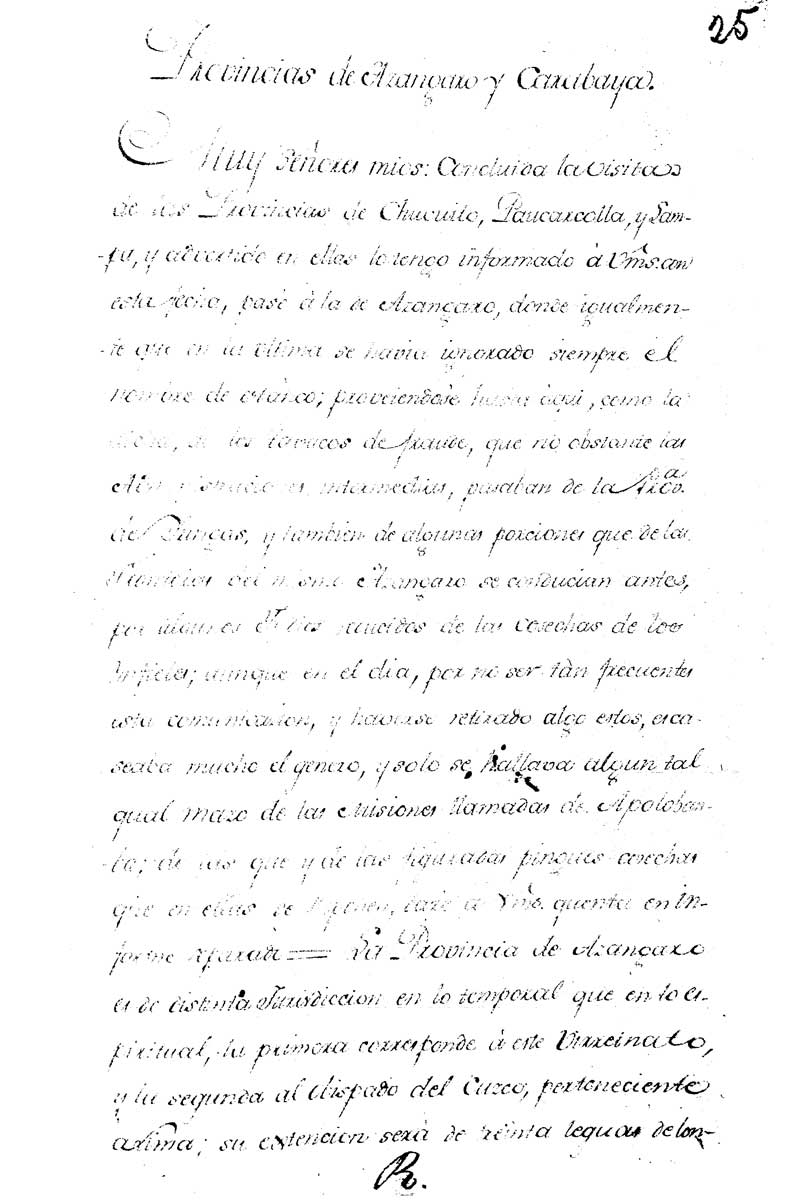 25
Provincias de Azangaro y Carabaya.
Muy Señores mios: Concluida la visita
de las Provincias de Chucuito, Paucarcolla, y Lam-
-pa, y advertido en ellas lo tengo informado à Vms. con
esta fecha, pasé à la de Azangaro, donde igualmen-
-te que en la ultima se havia ignorado siempre el
nombre de ; proveiendose hasta aqui, como la
dicha, de los tavacos de fraude, que no obstante las
intermedias, pasaban de la
de Yungas, y tambien de algunas porciones que de las
del mismo Azangaro se conducian antes,
por algunos de las cosechas de los
Infieles; aunque en el dia, por no ser tàn frecuente
esta comunicacion, y haverse retirado algo estos, esca-
seaba mucho el genero, y solo se hallava algun tal
qual mazo de las Misiones llamadas de Apolobam-
-ba; de las que y de las figuradas pingues cosechas
que en ellas se suponen, daré a Vms. quenta en In-
forme separado = La Provincia de Azangaro
es de distinta Jurisdiccion en lo temporal que en lo es-
piritual, la primera corresponde à este Virreinato,
y la segunda al Obispado del Cuzco, perteneciente
a Lima; su extencion serà de treinta leguas de lon-
R.